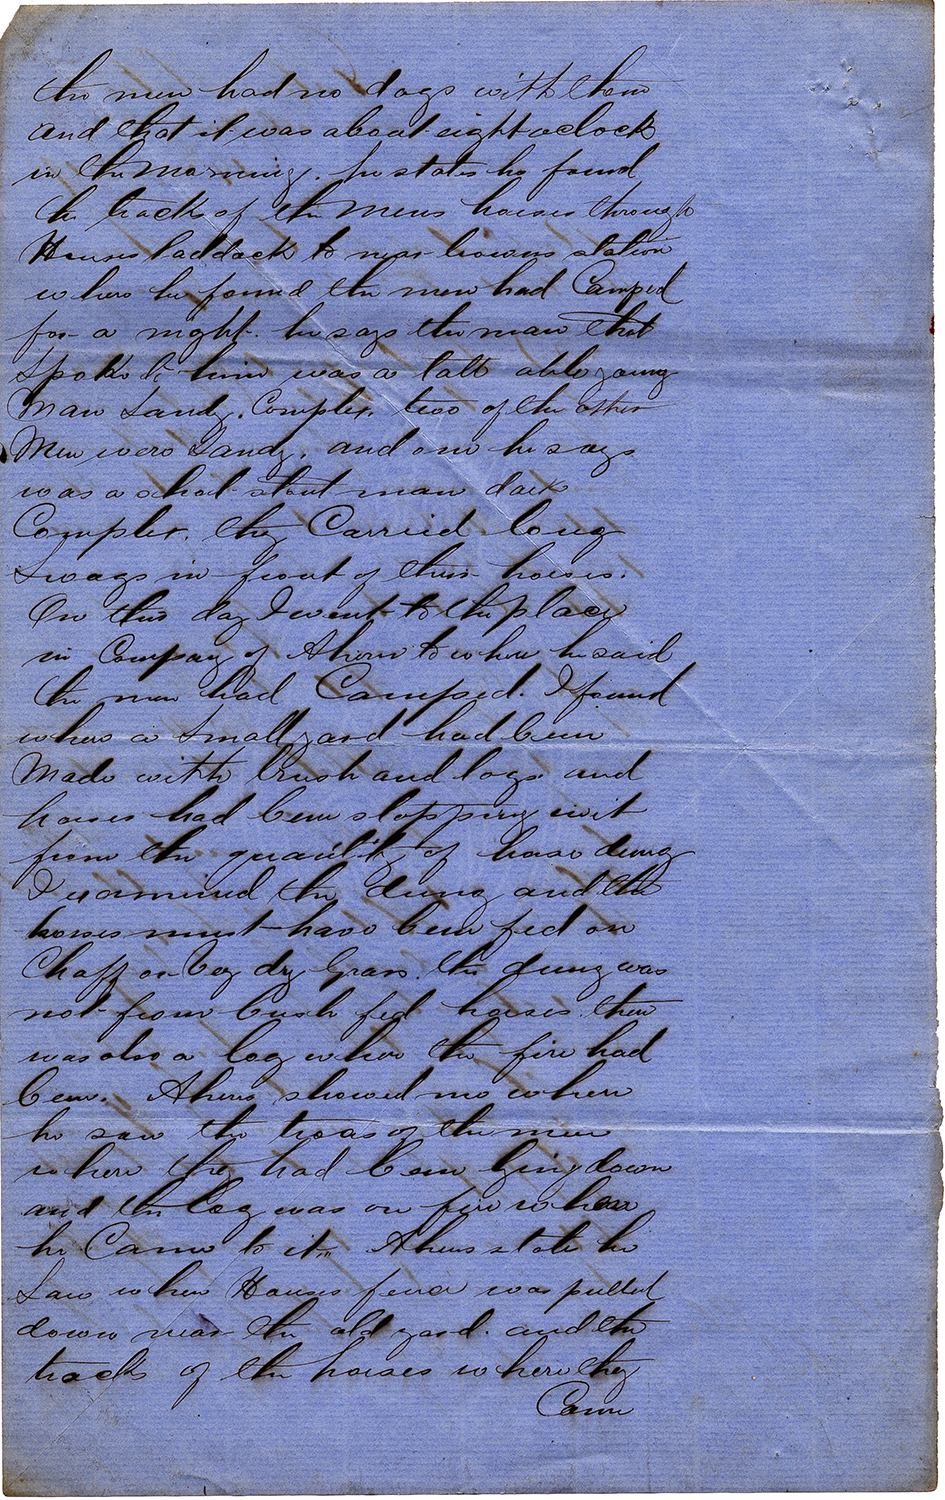 the men had no dogs with them
and that it was about eight oclock
in the morning. he states he found
the track of the mens horses through
Houses paddock to near browns station
where he found the men had Camped
for a night. he says the man that
Spoke to him was a tall able young
Man Sandy. Complex. two of the other
Men were Sandy. and one he says
was a short stout man dark
Complex. they Carried long
Swags in front of their horses.
On this day I went to the place
in Company of Ahern to where he said
the men had Camped. I found
where a Small yard had been
Made with brush and logs and
horses had been stopping in it
from the quantity of horse dung
I examined the dung and the
horses must have been fed on
Chaff or very dry Grass. the dung was
not from bush fed horses. there
was also a log where the fire had
been. Ahern showed me where
he saw the tracks of the men
where they had been lying down
and the log was on fire when
he Came to it. Ahern states he
Saw where Houses fence was pulled
down near the old yard. and the
tracks of the horses where they
Came